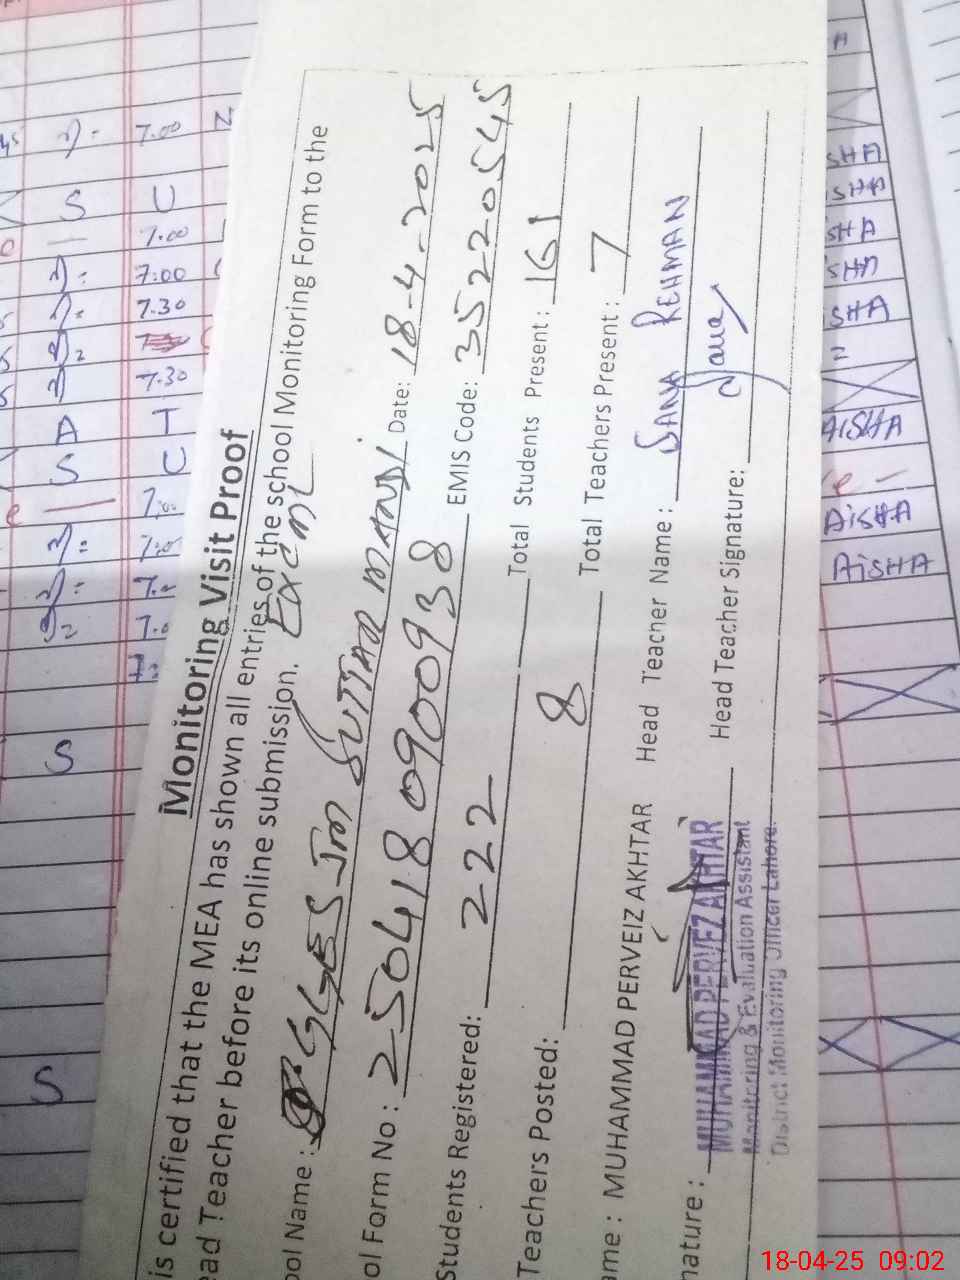 Monitoring Visit Proof
is certified that the MEA has shown all entries of the school Monitoring Form to the
ead Teacher before its online submission.
ool Name : GGES Jm SUTTAR MANDI Date: 18-4-2025
ol Form No : 2504180900938 EMIS Code: 35220545
Students Registered: 222 Total Students Present : 161
Teachers Posted: 8 Total Teachers Present : 7
ame : MUHAMMAD PERVEIZ AKHTAR Head Teacher Name : SANA REHMAN
nature : Head Teacher Signature: Sana
MUHAMMAD PERVEZ AKHTAR
Monitoring & Evaluation Assistant
District Monitoring Officer Lahore.
7.00
S U
7.00
7:00
7.30
7.30
A T
S U
S
S
SHA
ISHA
ISHA
ISHA
ISHA
AISHA
AISHA
AISHA
18-04-25 09:02